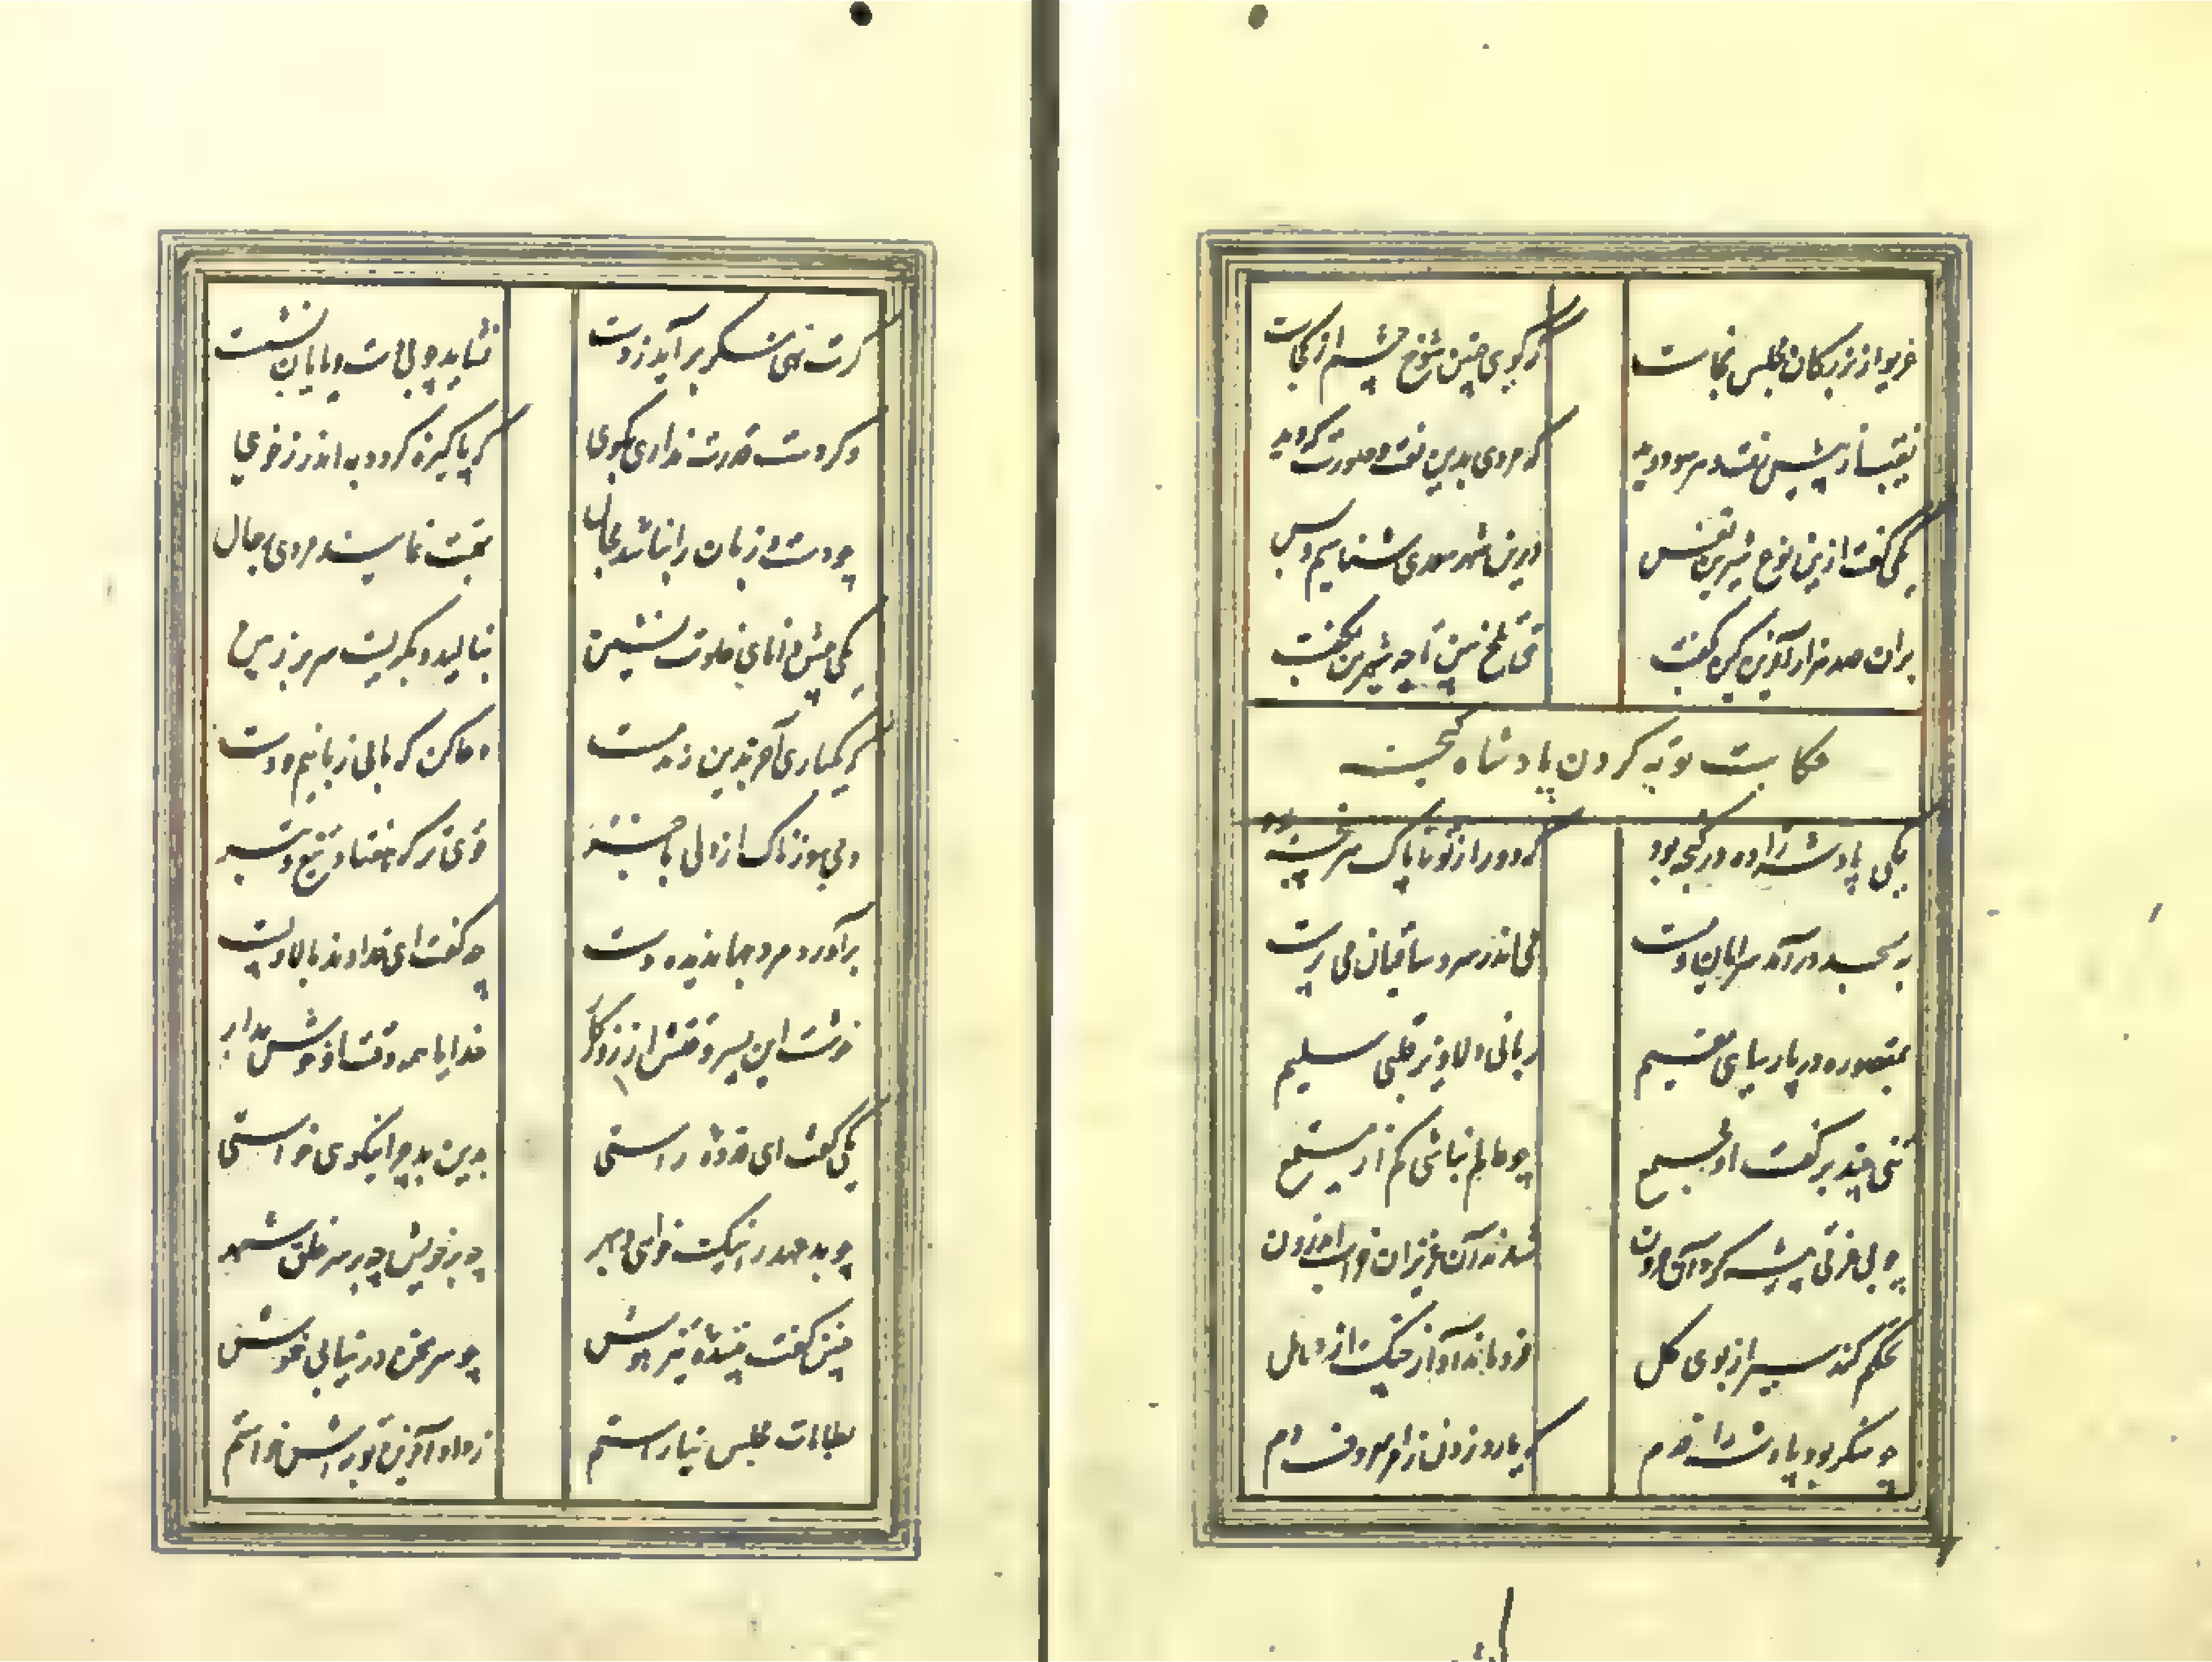 غریو از بزرگان مجلس بخاست
که گویی چنین شوخ چشم از کجاست
نقیب از پیش رفت و هر سو دوید
که مردی بدین نعت و صورت که دید
یکی گفت ازین نوع شیرین نفس
درین شهر سعدی شناسیم و بس
بران صد هزار آفرین کین بگفت
حق تلخ بین تا چه شیرین بگفت
حکایت توبه کردن پادشاه گنجه
یکی پادشه زاده در گنجه بود
که دور از تو ناپاک سرپنجه بود
به مسجد درآمد سرایان و مست
می اندر سر و ساتگینی به دست
بمقصوره در پارسایی مقیم
زبانی دلاویز و قلبی سلیم
تنی چند بر گفت او مجتمع
چو عالم نباشی کم از مستمع
چو بی عزتی پیشه کرد آن حرون
شدند آن عزیزان خراب اندرون
تحکم کند سیر از بوی گل
فروماند آواز چنگ از دهل
چو منکر بود پادشه را قدم
که یارد زدن ز امر معروف دم
گرت نهی منکر برآید ز دست
نشاید چو بی دست و پایان نشست
وگر دست قدرت نداری بگوی
که پاکیزه گردد به اندرز خوی
چو دست و زبان را نباشد مجال
بهمت نمایند مردی رجال
یکی پیش دانای خلوت نشین
بنالید و بگریست سر بر زمین
که یکباری آخر برین رند مست
دعا کن که ما بی زبانیم و دست
دمی سوزناک از دلی با خبر
قوی تر که هفتاد تیغ و تبر
برآورد مرد جهاندیده دست
چه گفت ای خداوند بالا و پست
خوشست این پسر وقتش از روزگار
خدایا همه وقت او خوش بدار
یکی گفتش ای قدوه راستی
بدین بد چرا نیکوی خواستی
چو بد عهد را نیک خواهی ز بهر
چه بد خواستی بر سر خلق شهر
چنین گفت بیننده تیز هوش
چو سر سخن در نیابی خموش
بطامات مجلس نیاراستم
ز داد آفرین توبه‌اش خواستم